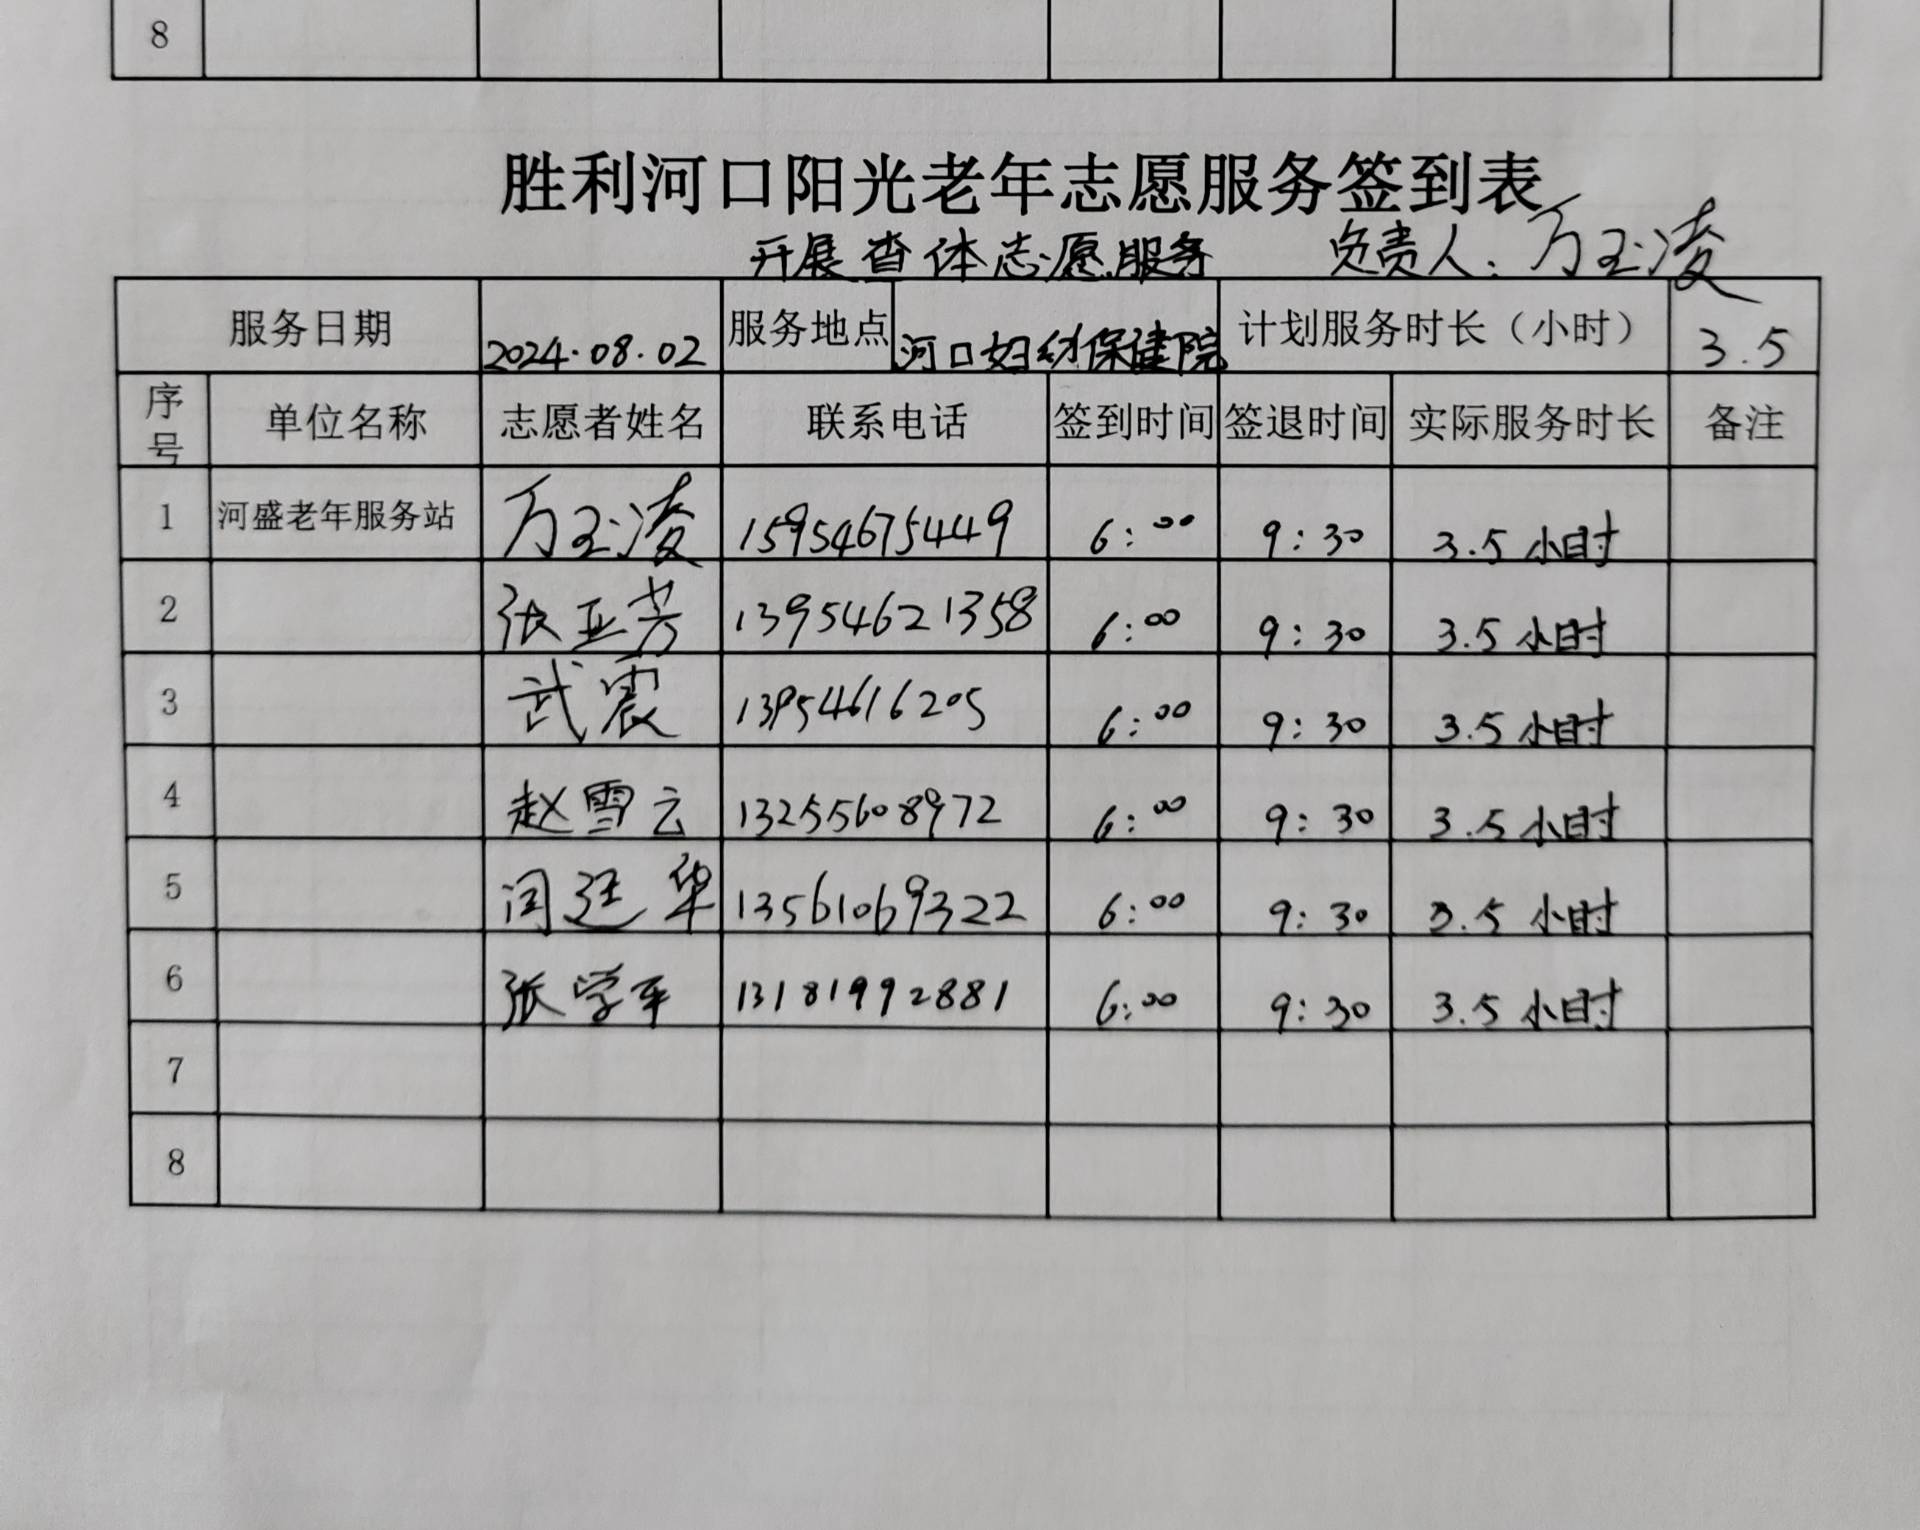 8
胜利河口阳光老年志愿服务签到表
开展查体志愿服务 负责人：万玉凌
服务日期 2024.08.02 服务地点 河口妇幼保健院 计划服务时长（小时） 3.5
序号 单位名称 志愿者姓名 联系电话 签到时间 签退时间 实际服务时长 备注
1 河盛老年服务站 万玉凌 15954675449 6:00 9:30 3.5小时
2 张亚芳 13954621358 6:00 9:30 3.5小时
3 武震 13954616205 6:00 9:30 3.5小时
4 赵雪云 13255608972 6:00 9:30 3.5小时
5 闫廷华 13561069322 6:00 9:30 3.5小时
6 张学平 13181992881 6:00 9:30 3.5小时
7
8